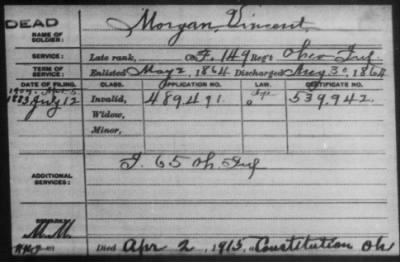 DEAD
NAME OF SOLDIER: Morgan, Vincent
SERVICE: Late rank, Co F, 149 Reg't Ohio Inf
TERM OF SERVICE: Enlisted May 2, 1864 Discharged Aug 30, 1864
DATE OF FILING. CLASS. APPLICATION NO. LAW. CERTIFICATE NO.
1883 July 12 Invalid, 489.491. 539.942.
Widow,
Minor,
ADDITIONAL SERVICES: F. 65 Oh. Inf
REMARKS:
M.M.
Died Apr 2, 1915, Constitution Oh